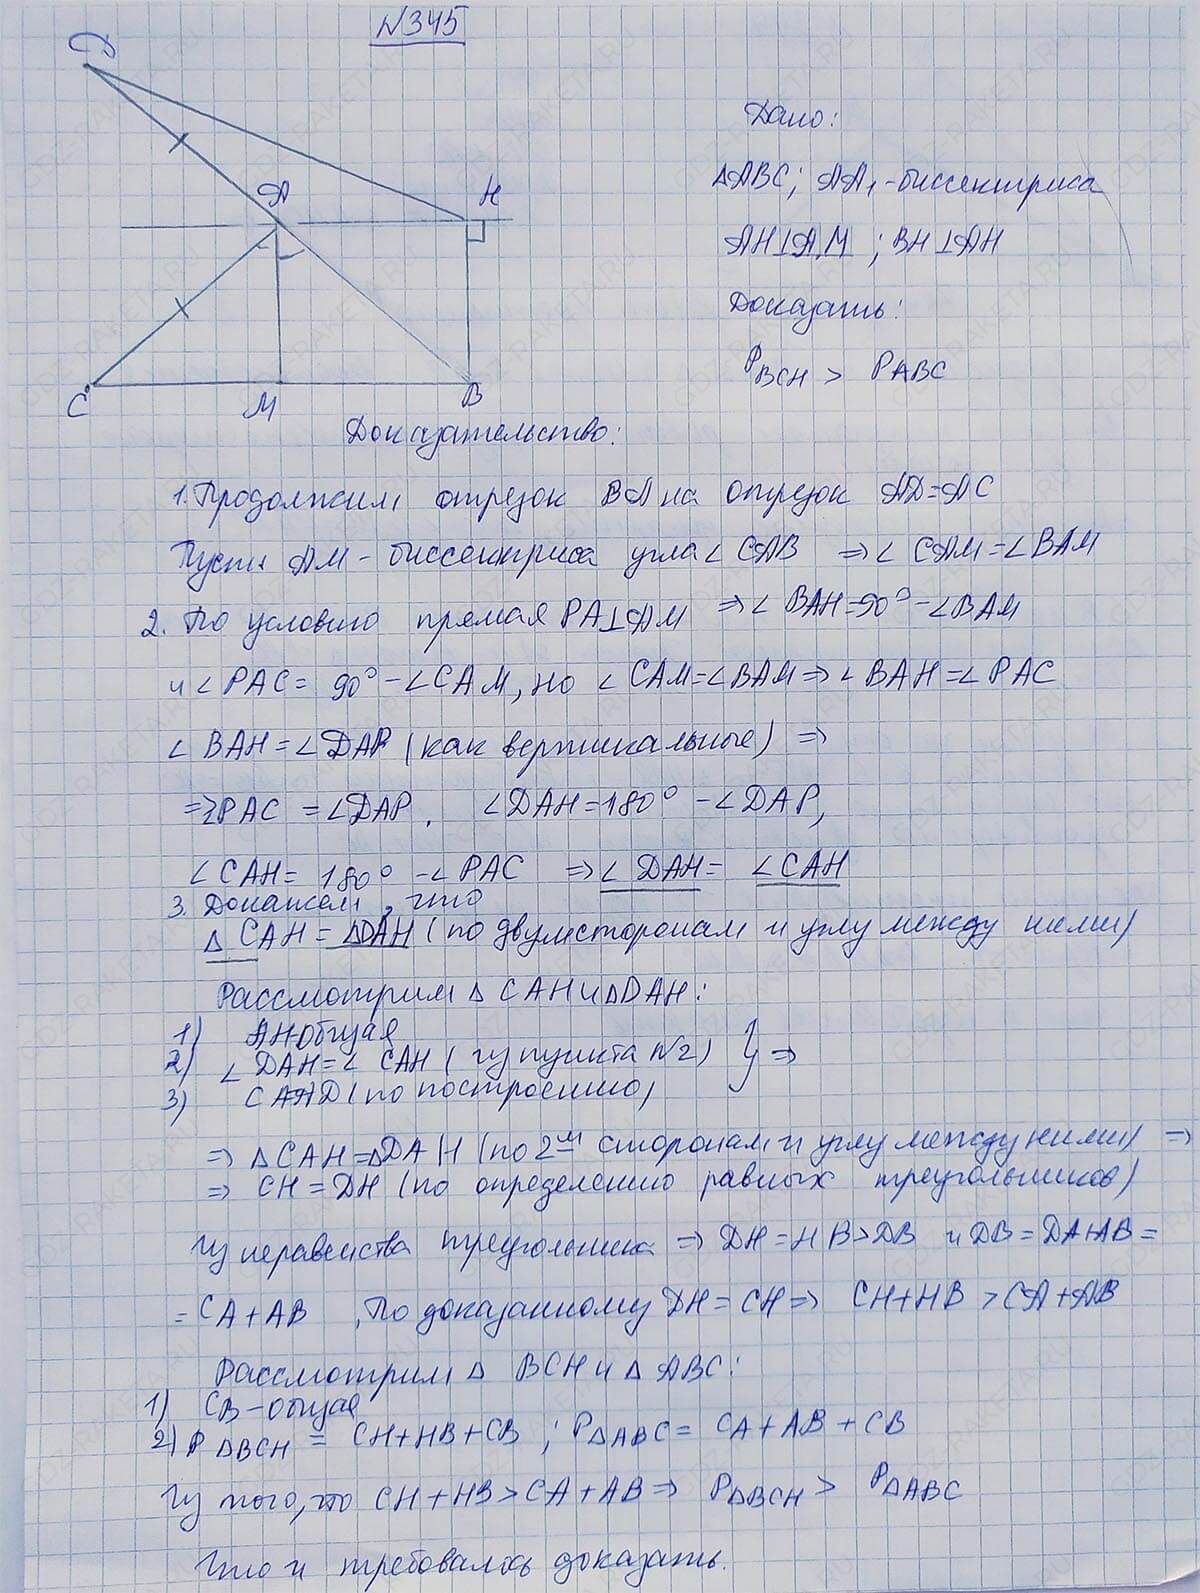 N345
D
A
H
C
M
B
Дано:
△ABC; AA₁-биссектриса
AH⊥A₁M ; BH⊥AH
Доказать:
P BCH > P ABC
Доказательство:
1. Продолжим отрезок BA на отрезок AD=AC
Пусть AM - биссектриса угла ∠CAB ⇒∠CAM=∠BAM
2. По условию прямая PA⊥AM ⇒∠BAH=90°-∠BAM
и ∠PAC= 90°-∠CAM, но ∠CAM=∠BAM⇒∠BAH=∠PAC
∠BAH=∠DAP (как вертикальные) ⇒
⇒∠PAC =∠DAP. ∠DAH=180° -∠DAP,
∠CAH= 180° -∠PAC ⇒∠DAH= ∠CAH
3. Докажем, что
△CAH=△DAH (по двум сторонам и углу между ними)
Рассмотрим △CAH и △DAH:
1) AH-общая
2) ∠DAH=∠CAH (из пункта N2) } ⇒
3) CA=AD (по построению)
⇒ △CAH=△DAH (по 2ᵘᵐ сторонам и углу между ними) ⇒
⇒ CH=DH (по определению равных треугольников)
Из неравенства треугольника ⇒ DH=HB>DB и DB=DA+AB=
= CA+AB , По доказанному DH=CH⇒ CH+HB >CA+AB
Рассмотрим △BCH и △ABC:
1) CB-общая
2) P△BCH = CH+HB+CB ; P△ABC= CA+AB+CB
Из того, что CH+HB>CA+AB⇒ P△BCH > P△ABC
Что и требовалось доказать.